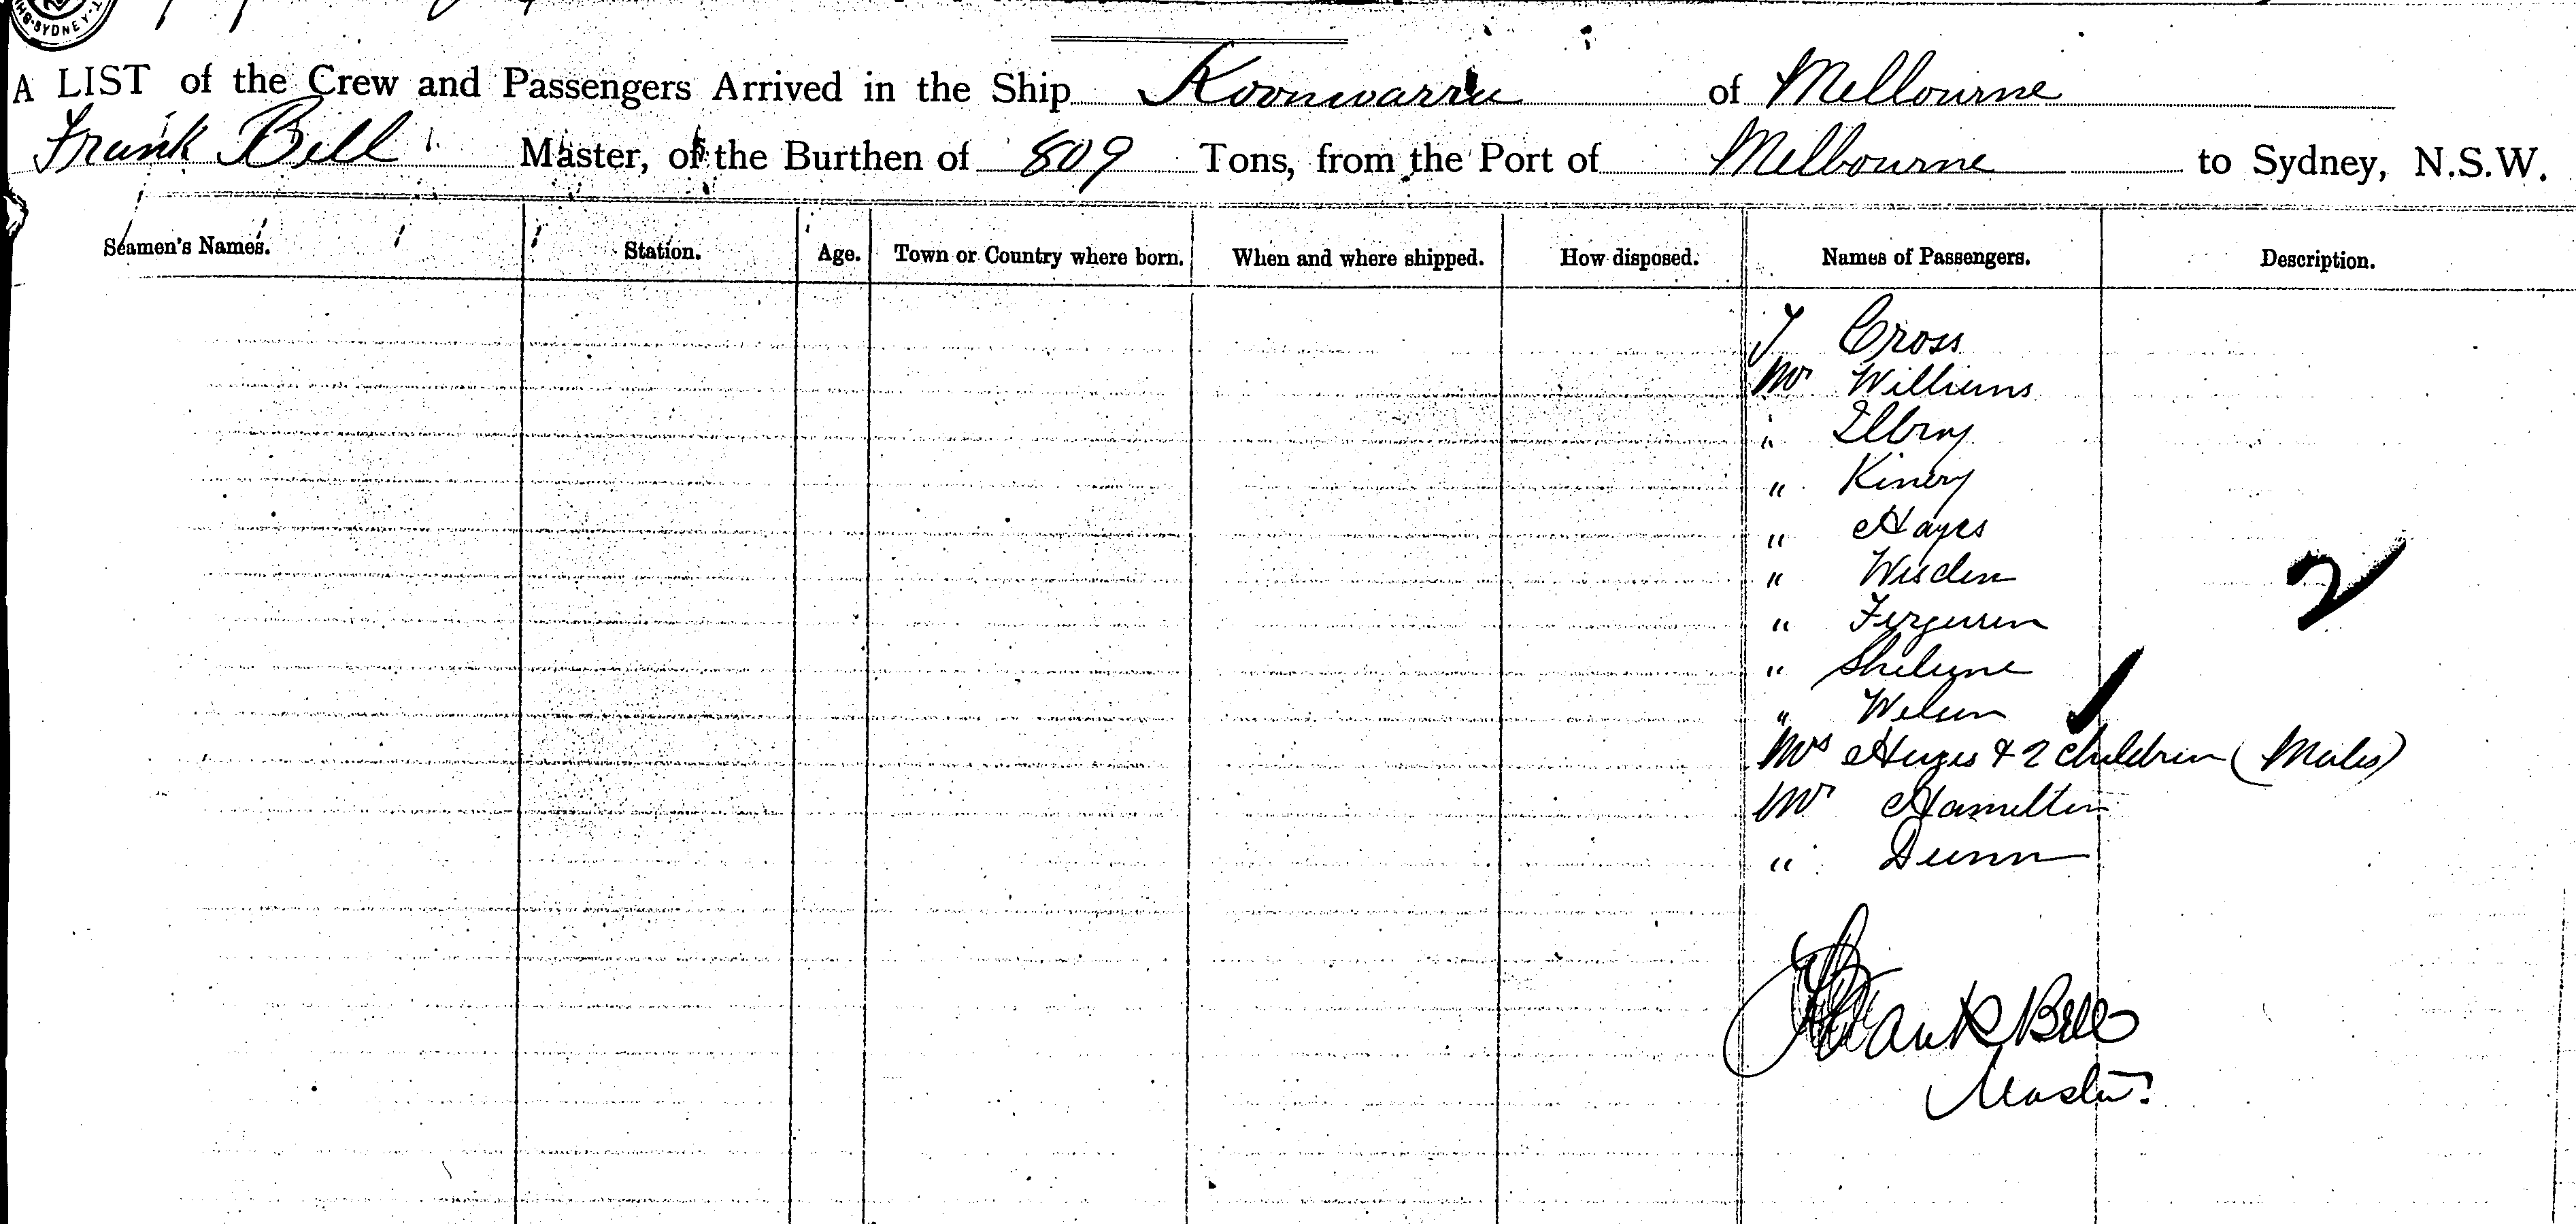 SYDNEY
A LIST of the Crew and Passengers Arrived in the Ship Koonwarra of Melbourne
Frank Bell Master, of the Burthen of 809 Tons, from the Port of Melbourne to Sydney, N.S.W.
Seamen's Names. Station. Age. Town or Country where born. When and where shipped. How disposed. Names of Passengers. Description.
J Cross
Mr Williams
"
" Kinery
" Hayes
" Wisden
" Ferguson
"
" Wilson
Mrs Hayes & 2 children (Males)
Mr Hamilton
" Dunn
2
Frank Bell
Master